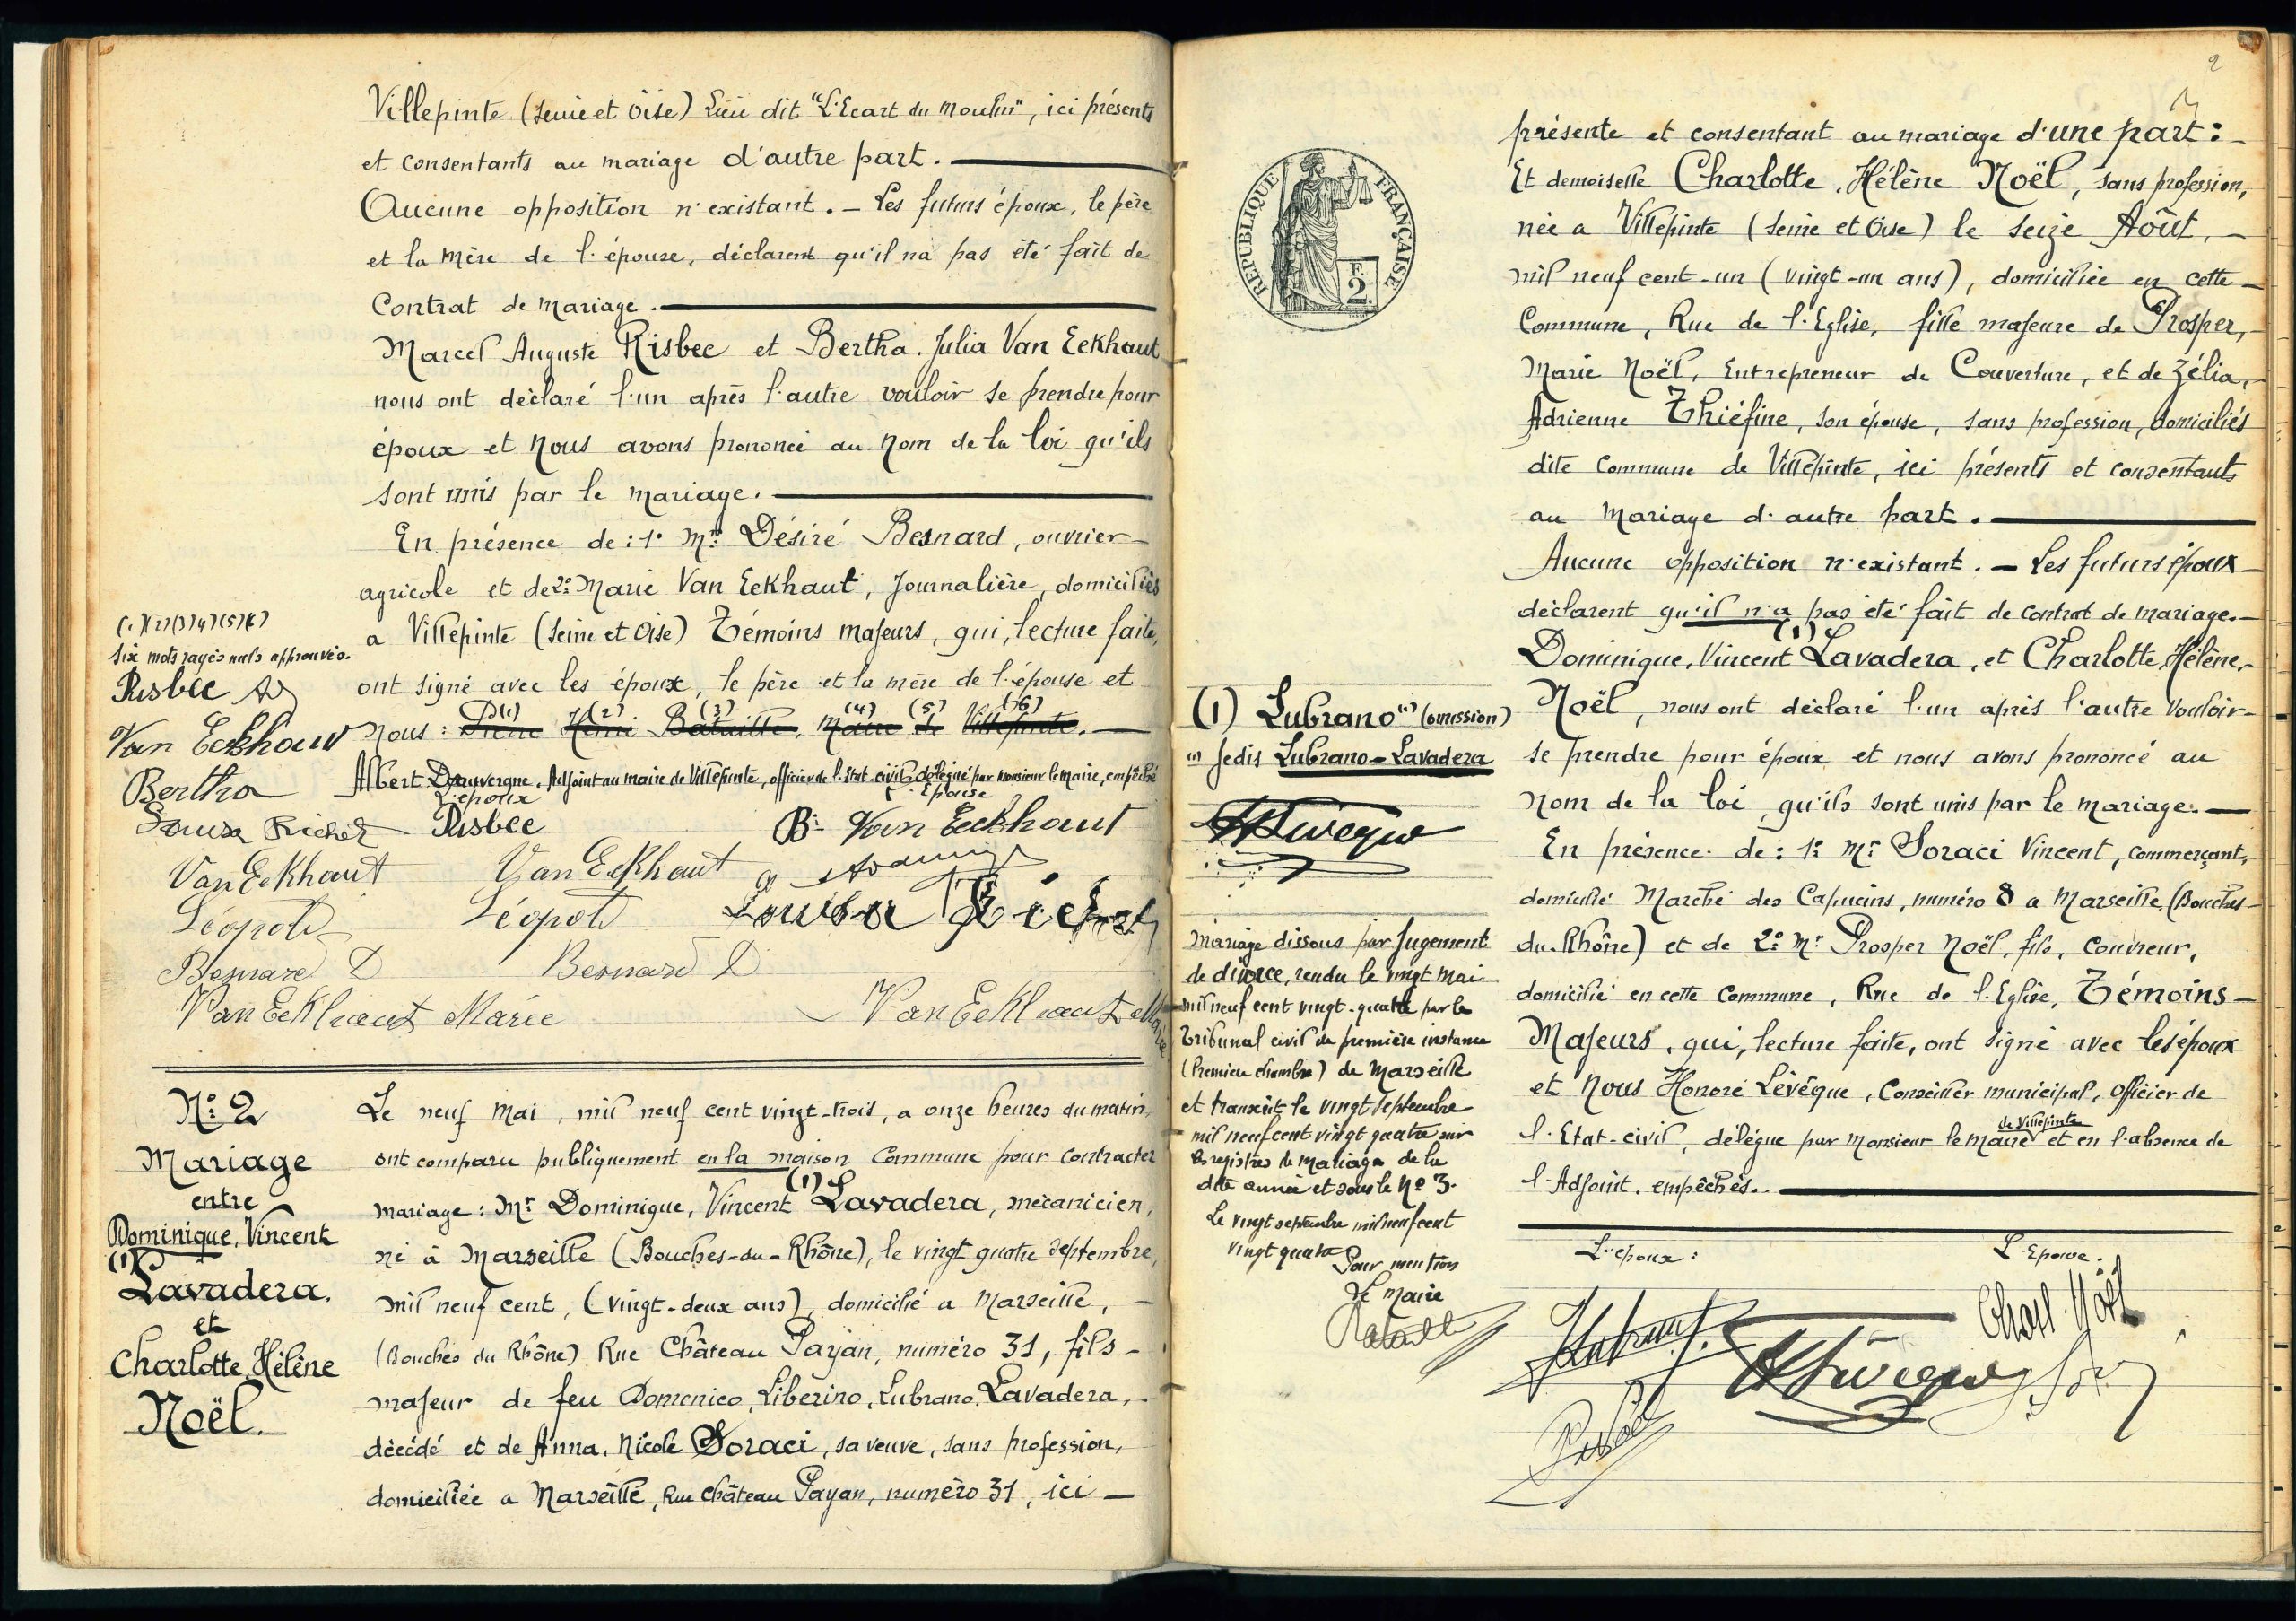 Villepinte (Seine et Oise) Lieu dit "L'Ecart du Moulin", ici présents
et consentants au mariage d'autre part.
Aucune opposition n'existant. — Les futurs époux, le père
et la mère de l'épouse, déclarent qu'il n'a pas été fait de
Contrat de Mariage.
Marcel Auguste Risbec et Bertha. Julia Van Eekhaut
nous ont déclaré l'un après l'autre vouloir se prendre pour
époux et Nous avons prononcé au Nom de la loi qu'ils
sont unis par le mariage.
En présence de : 1° Mr Désiré Besnard, ouvrier
agricole et de 2° Marie Van Eekhaut, Journalière, domiciliés
a Villepinte (Seine et Oise) Témoins majeurs, qui, lecture faite,
ont signé avec les époux, le père et la mère de l'épouse et
Nous : Pierre (1) Henri (2) Bataille (3), Maire (4) de (5) Villepinte (6).
Albert Dauvergne, Adjoint au maire de Villepinte, officier de l'Etat-civil délégué par Monsieur le Maire, empêché
(1)(2)(3)(4)(5)(6)
Six mots rayés nuls approuvés.
Risbec
Van Eekhaut
Bertha
Louisa Richet
Van Eekhaut
Léopold
Besnard D
Van Eekhaut Marie
L'époux
L'Epouse
Risbec
B. Van Eekhaut
Van Eekhaut
Léopold
Louisa Richet
Besnard D
Van Eekhaut Marie
N° 2
Mariage
entre
Dominique, Vincent
(1)
Lavadera.
et
Charlotte, Hélène
Noël.
Le neuf Mai, mil neuf cent vingt-trois, a onze heures du matin,
ont comparu publiquement en la maison Commune pour contracter
mariage : Mr Dominique, Vincent (1) Lavadera, mécanicien,
né à Marseille (Bouches-du-Rhône), le vingt quatre Septembre,
mil neuf cent, (vingt-deux ans), domicilié a Marseille, —
(Bouches du Rhône) Rue Château Payan, numéro 31, fils —
majeur de feu Domenico, Liberino, Lubrano, Lavadera,
décédé et de Anna, Nicole Soraci, sa veuve, sans profession,
domiciliée a Marseille, Rue Château Payan, numéro 31, ici —
2
REPUBLIQUE FRANÇAISE
F.
2
présente et consentant au mariage d'une part : —
Et demoiselle Charlotte, Hélène Noël, sans profession,
née a Villepinte (Seine et Oise) le Seize Août, —
mil neuf cent-un (vingt-un ans), domiciliée en cette —
Commune, Rue de l'Eglise, fille majeure de Prosper, —
Marie Noël, Entrepreneur de Couverture, et de Zélia, —
Adrienne Thiéfine, son épouse, sans profession, domiciliés
dite Commune de Villepinte, ici présents et consentants
au Mariage d'autre part.
Aucune opposition n'existant. — Les futurs époux —
déclarent qu'il n'a pas été fait de contrat de mariage. —
Dominique, Vincent (1) Lavadera, et Charlotte, Hélène, —
Noël, nous ont déclaré l'un après l'autre vouloir —
se prendre pour époux et nous avons prononcé au
Nom de la loi, qu'ils sont unis par le mariage. —
En présence de : 1° Mr Soraci Vincent, commerçant,
domicilié Marché des Capucins, numéro 8 a Marseille (Bouches —
du-Rhône) et de 2° Mr Prosper Noël, fils, couvreur,
domicilié en cette Commune, Rue de l'Eglise, Témoins —
Majeurs, qui, lecture faite, ont signé avec les époux
et Nous Honoré Lévêque, Conseiller municipal, Officier de
l'Etat-civil, délégué par Monsieur le Maire de Villepinte et en l'absence de
l'Adjoint, empêchés.
(1) Lubrano (1) (omission)
(1) Je dis Lubrano-Lavadera
HLévêque
Mariage dissous par Jugement
de divorce, rendu le vingt Mai
mil neuf cent vingt-quatre par le
Tribunal civil de première instance
(Première chambre) de Marseille
et transcrit le vingt septembre
mil neuf cent vingt quatre sur
les registres de Mariage de la
dite année et sous le N° 3.
Le vingt septembre mil neuf cent
vingt quatre
Pour mention
Le Maire
Bataille
L'époux :
L'Epouse :
Charl. Noël
HLévêque